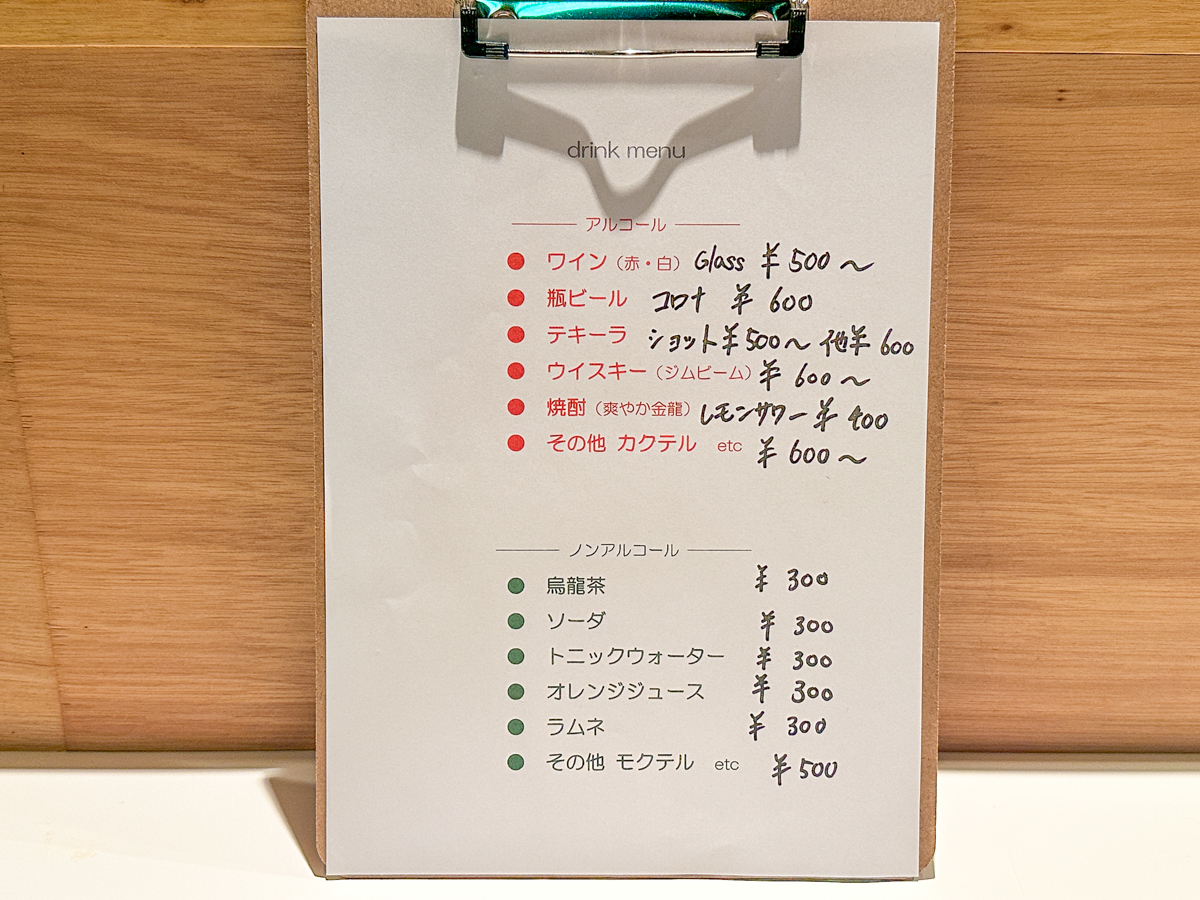 drink menu
アルコール
ワイン（赤・白） Glass ¥500～
瓶ビール コロナ ¥600
テキーラ ショット¥500～ 他¥600
ウイスキー（ジムビーム）¥600～
焼酎（爽やか金龍）レモンサワー¥400
その他 カクテル etc ¥600～
ノンアルコール
烏龍茶 ¥300
ソーダ ¥300
トニックウォーター ¥300
オレンジジュース ¥300
ラムネ ¥300
その他 モクテル etc ¥500